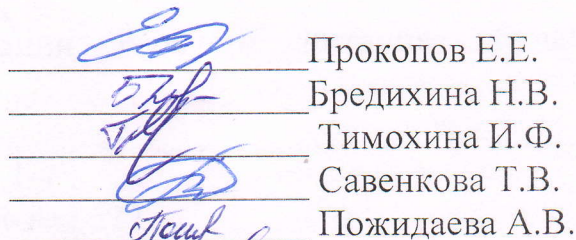 Прокопов Е.Е.
Бредихина Н.В.
Тимохина И.Ф.
Савенкова Т.В.
Пожидаева А.В.